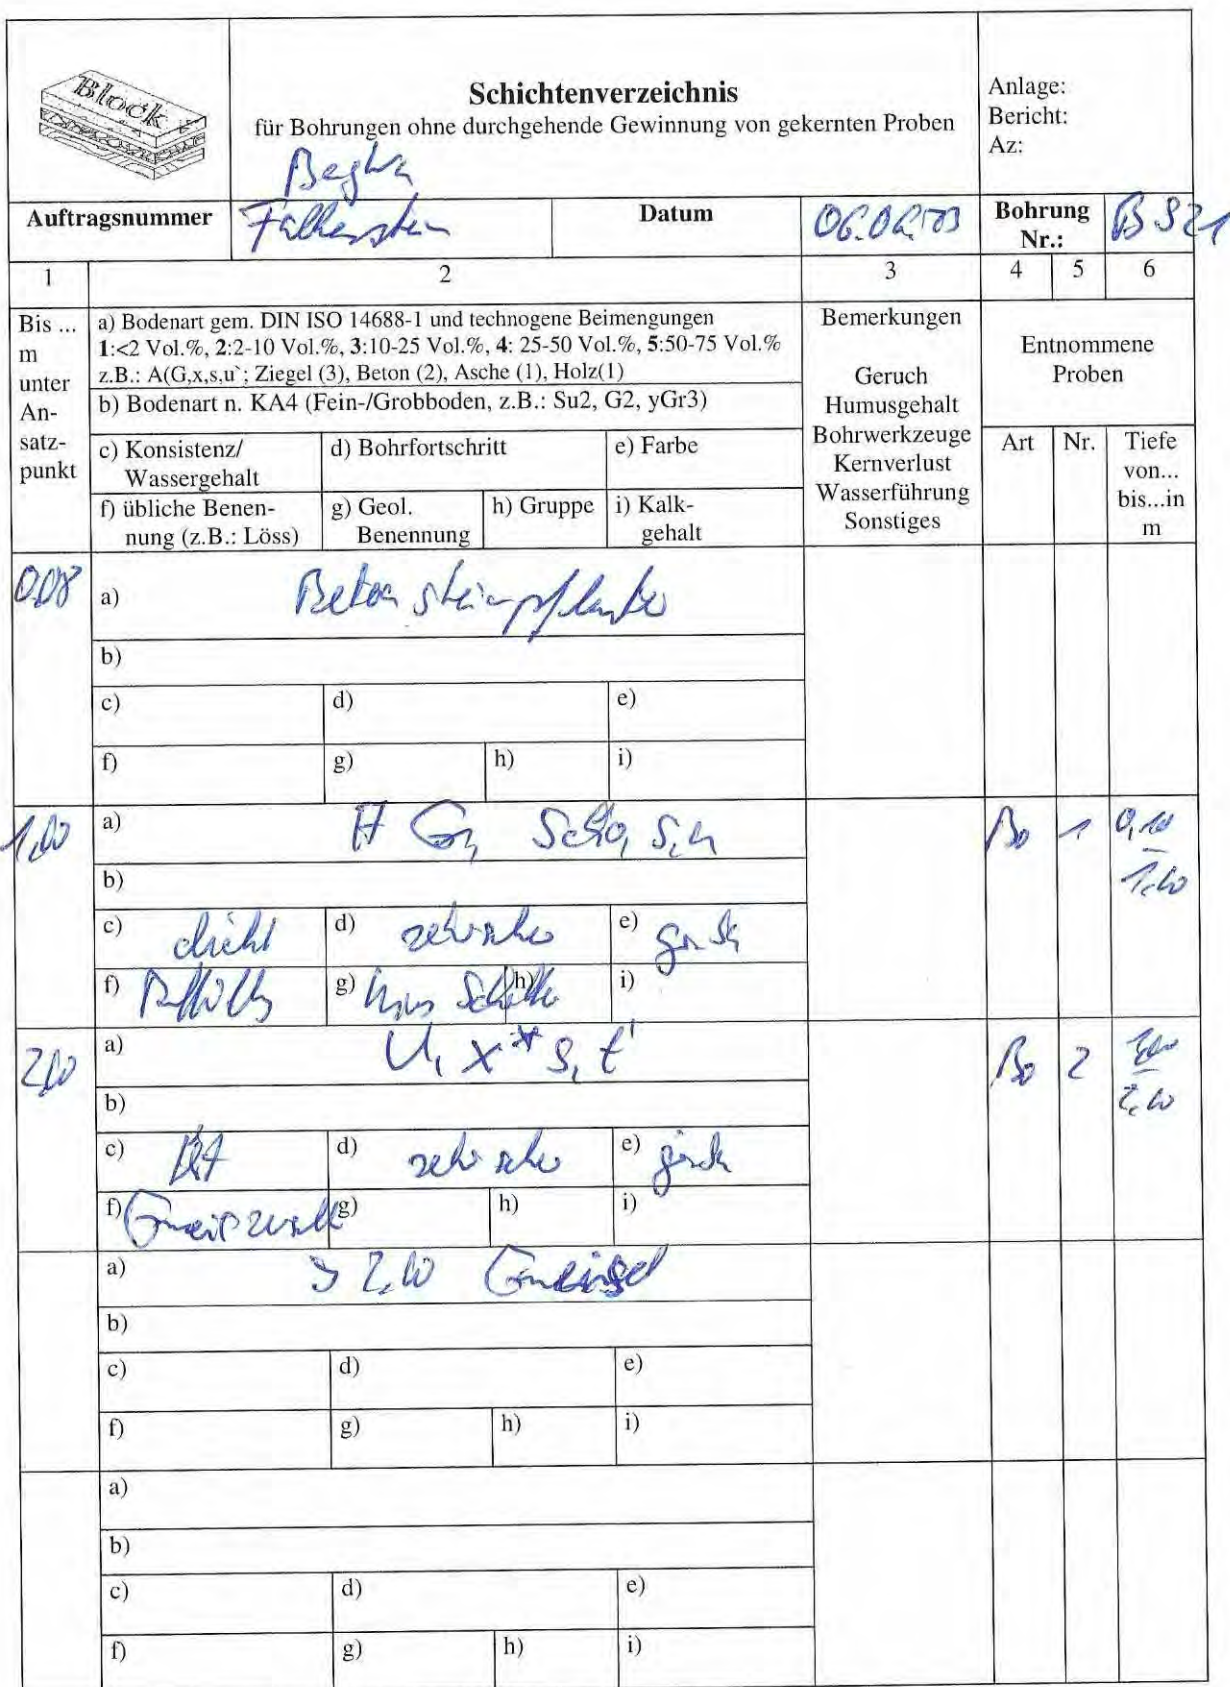 Block
Schichtenverzeichnis
für Bohrungen ohne durchgehende Gewinnung von gekernten Proben
Anlage:
Bericht:
Az:
Auftragsnummer Falkenstein Datum Bohrung Nr.: BS21
1 2 3 4 5 6
Bis ... m unter An-satz-punkt
a) Bodenart gem. DIN ISO 14688-1 und technogene Beimengungen
1:<2 Vol.%, 2:2-10 Vol.%, 3:10-25 Vol.%, 4: 25-50 Vol.%, 5:50-75 Vol.%
z.B.: A(G,x,s,u`; Ziegel (3), Beton (2), Asche (1), Holz(1)
b) Bodenart n. KA4 (Fein-/Grobboden, z.B.: Su2, G2, yGr3)
c) Konsistenz/ Wassergehalt
d) Bohrfortschritt
e) Farbe
f) übliche Benen-nung (z.B.: Löss)
g) Geol. Benennung
h) Gruppe
i) Kalk-gehalt
Bemerkungen
Geruch
Humusgehalt
Bohrwerkzeuge
Kernverlust
Wasserführung
Sonstiges
Entnommene
Proben
Art Nr. Tiefe von... bis...in m
0,08
a) Betonsteinpflaster
b)
c) d) e)
f) g) h) i)
1,00
a)
b)
c) dicht d) e)
f) g) h) i)
Bo 1 0,10
1,00
2,00
a) U, x* s, t'
b)
c) d) e)
f) g) h) i)
Bo 2 1,00
2,00
a) > 2,00
b)
c) d) e)
f) g) h) i)
a)
b)
c) d) e)
f) g) h) i)